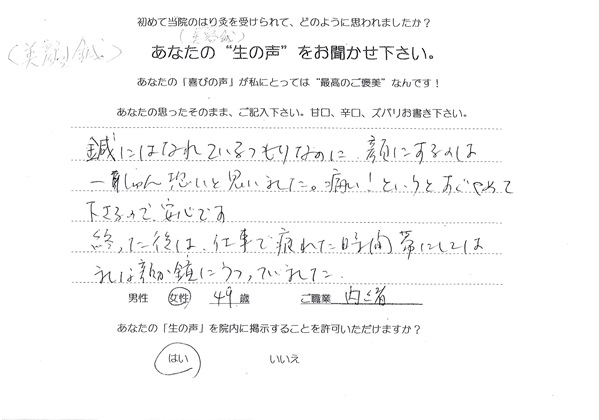 初めて当院のはり灸を受けられて、どのように思われましたか？
(美顔鍼)
(美容鍼)
あなたの“生の声”をお聞かせ下さい。
あなたの「喜びの声」が私にとっては“最高のご褒美”なんです！
あなたの思ったそのまま、ご記入下さい。甘口、辛口、ズバリお書き下さい。
鍼にはなれているつもりなのに、顔にするのは
一しゅん恐いと思いました。痛い！というとすぐやめて
下さるので、安心です
終った後は、仕事で疲れた時間帯にしては
顔が鏡にうつっていました.
男性 女性 49歳 ご職業 内緒
あなたの「生の声」を院内に掲示することを許可いただけますか？
はい いいえ